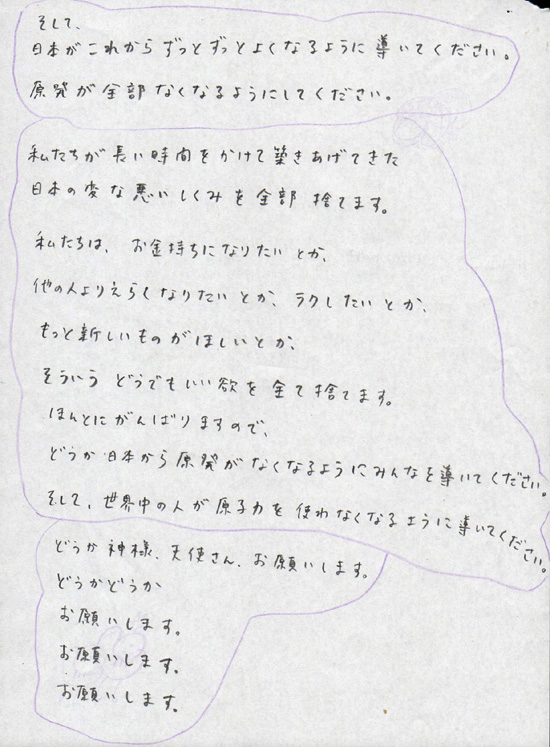 そして、
日本がこれからずっとずっとよくなるように導いてください。
原発が全部なくなるようにしてください。
私たちが長い時間をかけて築きあげてきた
日本の変な悪いしくみを全部捨てます。
私たちは、お金持ちになりたいとか、
他の人よりえらくなりたいとか、ラクしたいとか、
もっと新しいものがほしいとか、
そういうどうでもいい欲を全て捨てます。
ほんとにがんばりますので、
どうか日本から原発がなくなるようにみんなを導いてください。
そして、世界中の人が原子力を使わなくなるように導いてください。
どうか神様、天使さん、お願いします。
どうかどうか
お願いします。
お願いします。
お願いします。